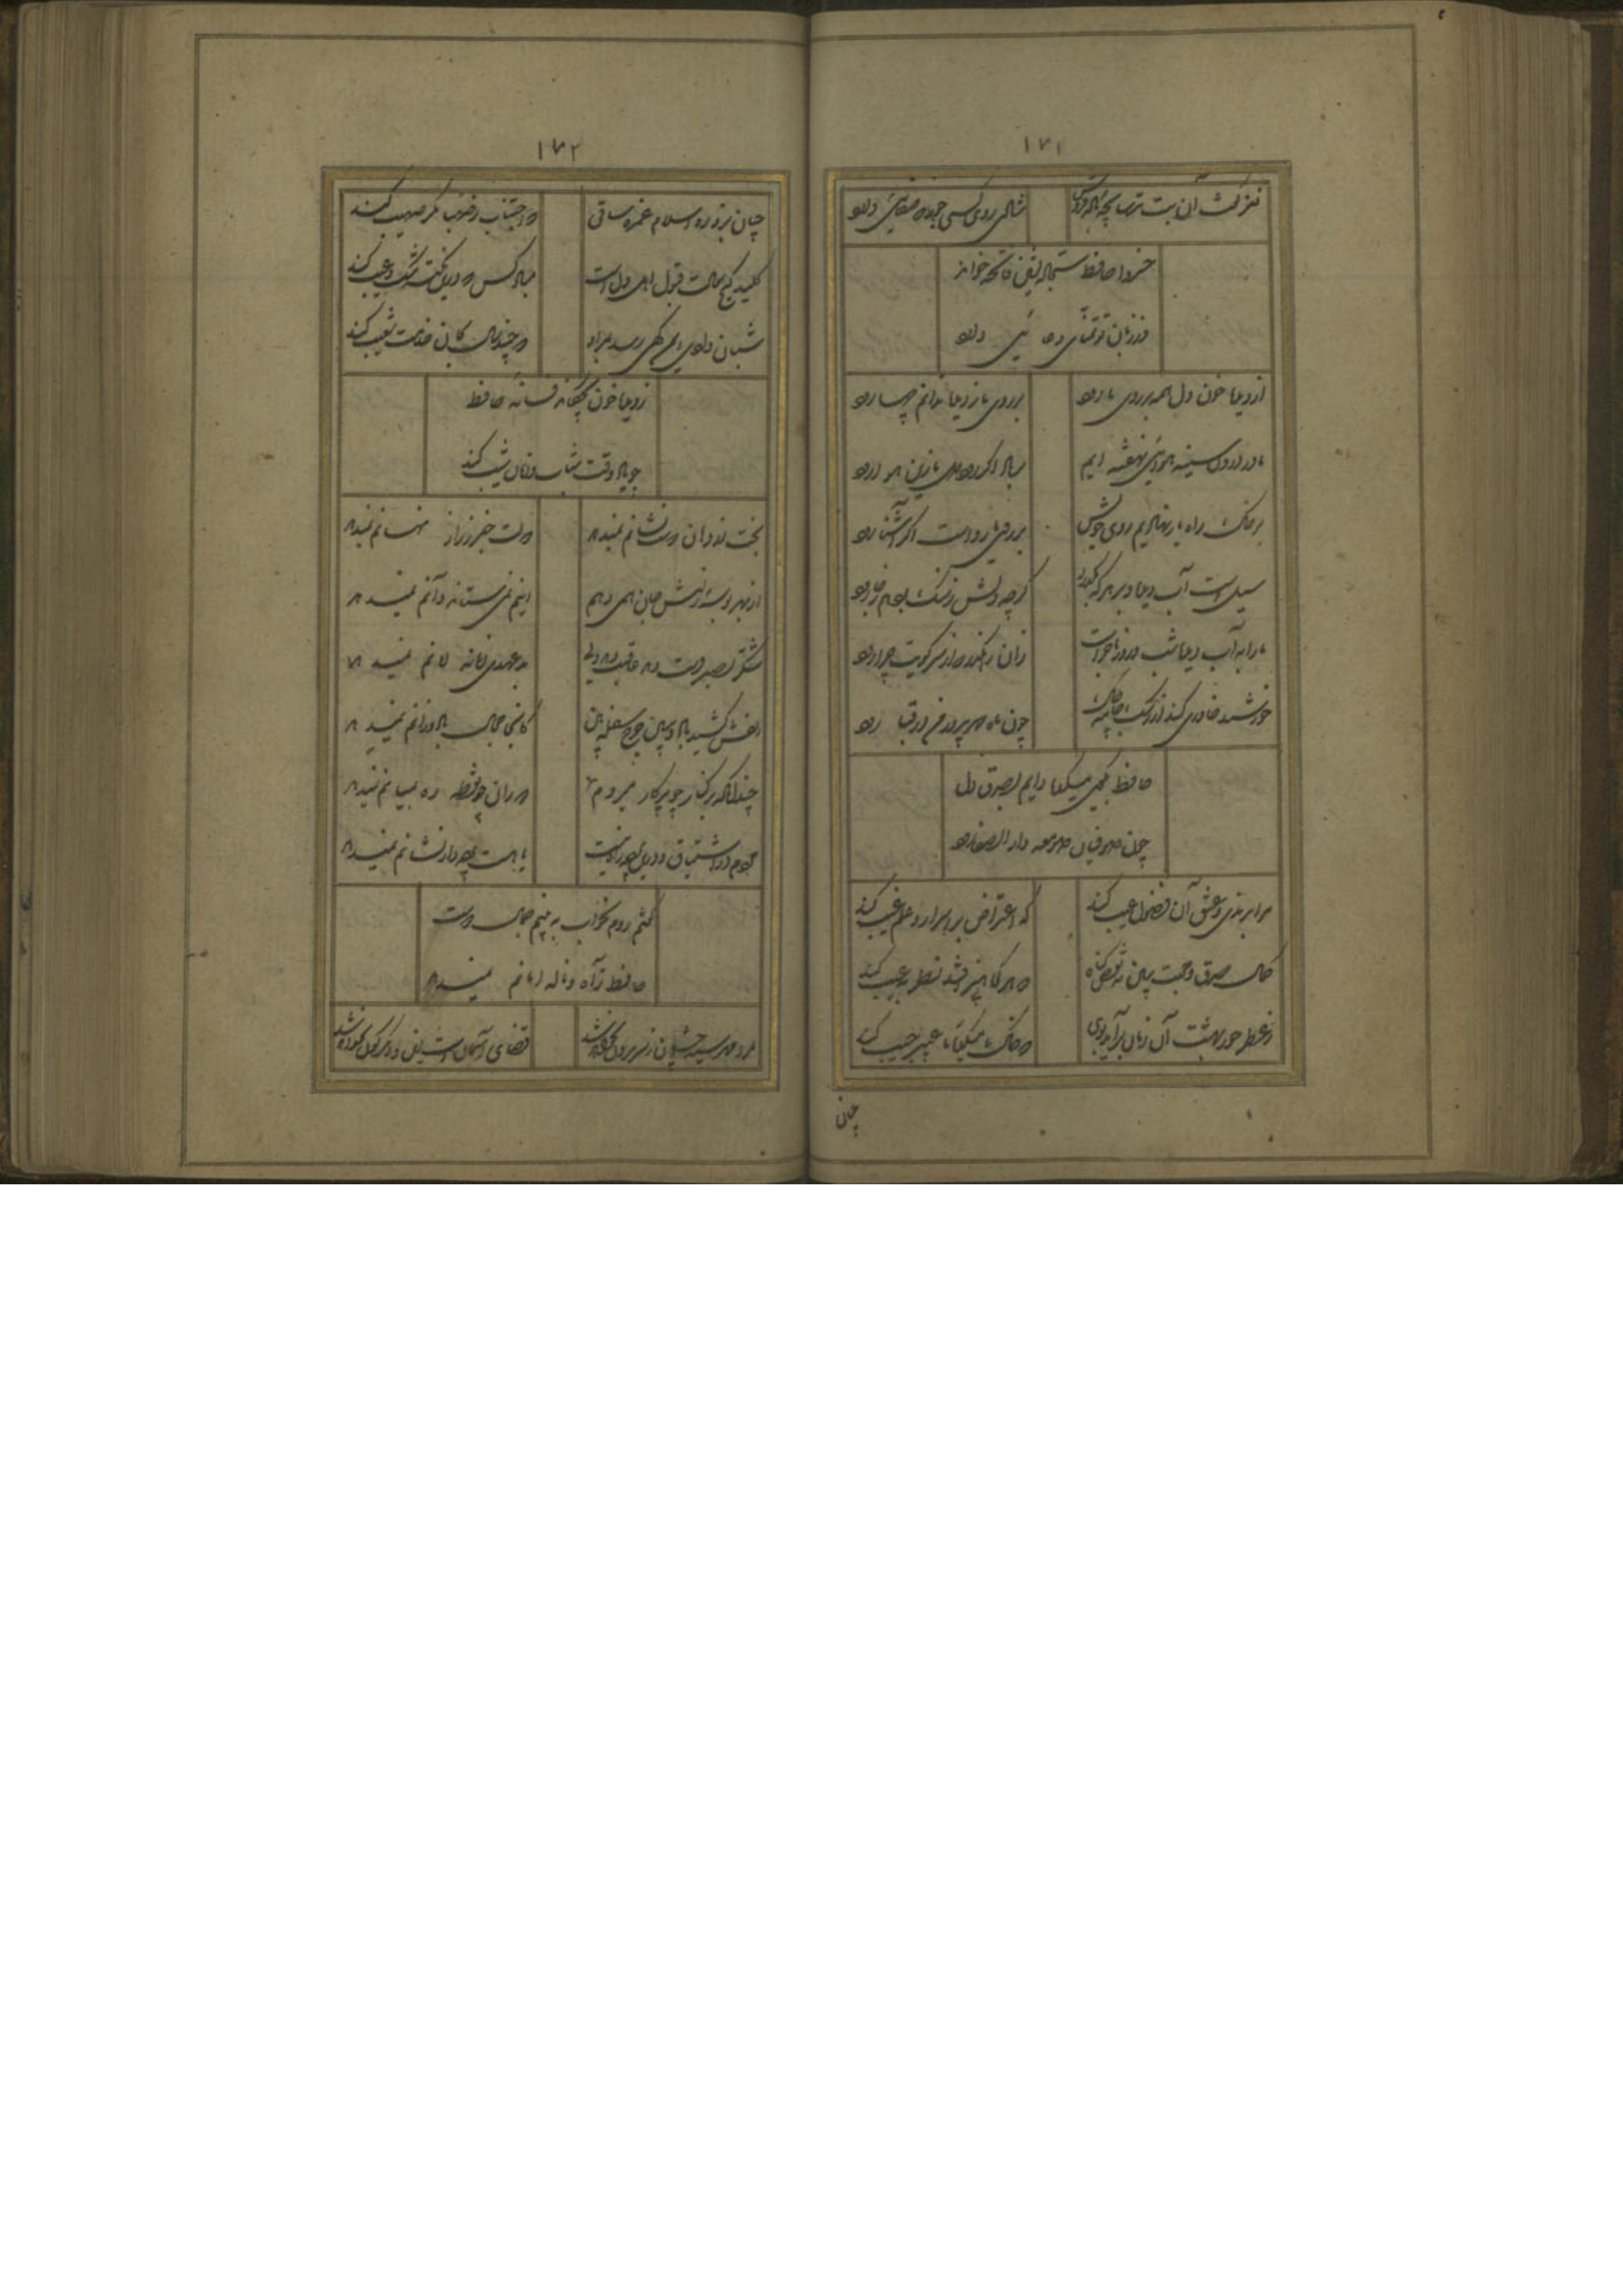 ۱۷۱
نغز گفت آن بت ترسا بچه باده فروش شادی روی کسی خور که صفایی دارد
خسروا حافظ درگاه نشین فاتحه خواند
وز زبان تو تمنای دعایی دارد
از دیده خون دل همه بر روی ما رود بر روی ما ز دیده ندانم چها رود
ما در درون سینه هوایی نهفته ایم بر باد اگر رود دل ما زین هوا رود
بر خاک راه یار نهادیم روی خویش بر روی ما رواست اگر آشنا رود
سیل است آب دیده و بر هر که بگذرد گرچه دلش ز سنگ بود هم ز جا رود
ما را به آب دیده شب و روز ماجراست زان رهگذر که از سر کویت چرا رود
خورشید خاوری کند از رشک جامه چاک چون ماه مهرپرور من در قبا رود
حافظ بکوی میکده دایم بصدق دل
چون صوفیان صومعه دار الصفا رود
مرا برندی و عشق آن فضول عیب کند که اعتراض بر اسرار علم غیب کند
کمال صدق و محبت ببین نه نقص گناه که هر که بی هنر افتد نظر به عیب کند
ز عطر حور بهشت آن زمان برآید بوی که خاک میکده ما عبیر جیب کند
چنان
۱۷۲
چنان بزد ره اسلام غمزه ساقی که اجتناب ز صهبا مگر صهیب کند
کلید گنج سعادت قبول اهل دل است مباد کس که درین نکته شک و ریب کند
شبان وادی ایمن گهی رسد بمراد که چند سال بجان خدمت شعیب کند
ز دیده خون بچکاند فسانه حافظ
چو یاد وقت شباب و زمان شیب کند
بخت از دهان دوست نشانم نمیدهد دولت خبر ز راز نهانم نمیدهد
از بهر بوسه ز لبش جان همی دهم اینم نمی ستاند و آنم نمیدهد
شکر بصبر دست دهد عاقبت ولی بدعهدی زمانه زمانم نمیدهد
زلفش کشید باد صبا چرخ سفله بین کانجا مجال باد وزانم نمیدهد
چندانکه بر کنار چو پرکار میروم دوران چو نقطه ره بمیانم نمیدهد
مردم در اشتیاق و درین پرده راه نیست یا هست پرده دار نشانم نمیدهد
گفتم روم بخواب ببینم جمال دوست
حافظ ز آه و ناله امانم نمیدهد
مرا مهر سیه چشمان ز سر بیرون نخواهد شد قضای آسمان است این و دیگرگون نخواهد شد